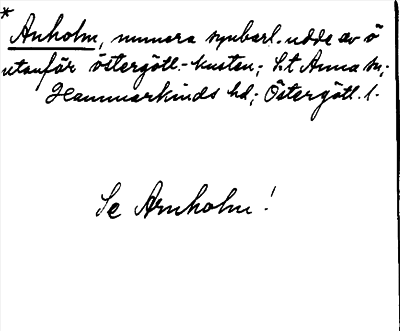 * Anholm, numera synbarl. udde av ö
utanför östergötl.-kusten; S:t Anna sn;
Hammarkinds hd; Östergötl. l.
Se Arnholm!